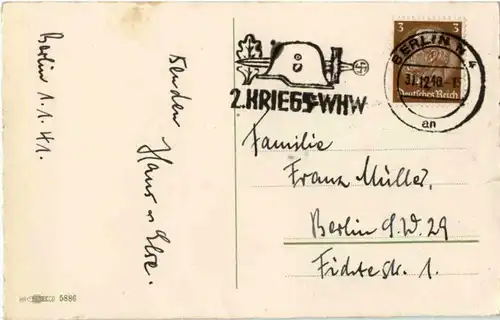 Berlin 1.1.41.
senden
Hans u. Else.
2. KRIEGS-WHW
3 3
Deutsches Reich
BERLIN N 4
31.12.40.-15
an
Familie
Franz Müller,
Berlin S.W. 29
Fichtestr. 1.
5886